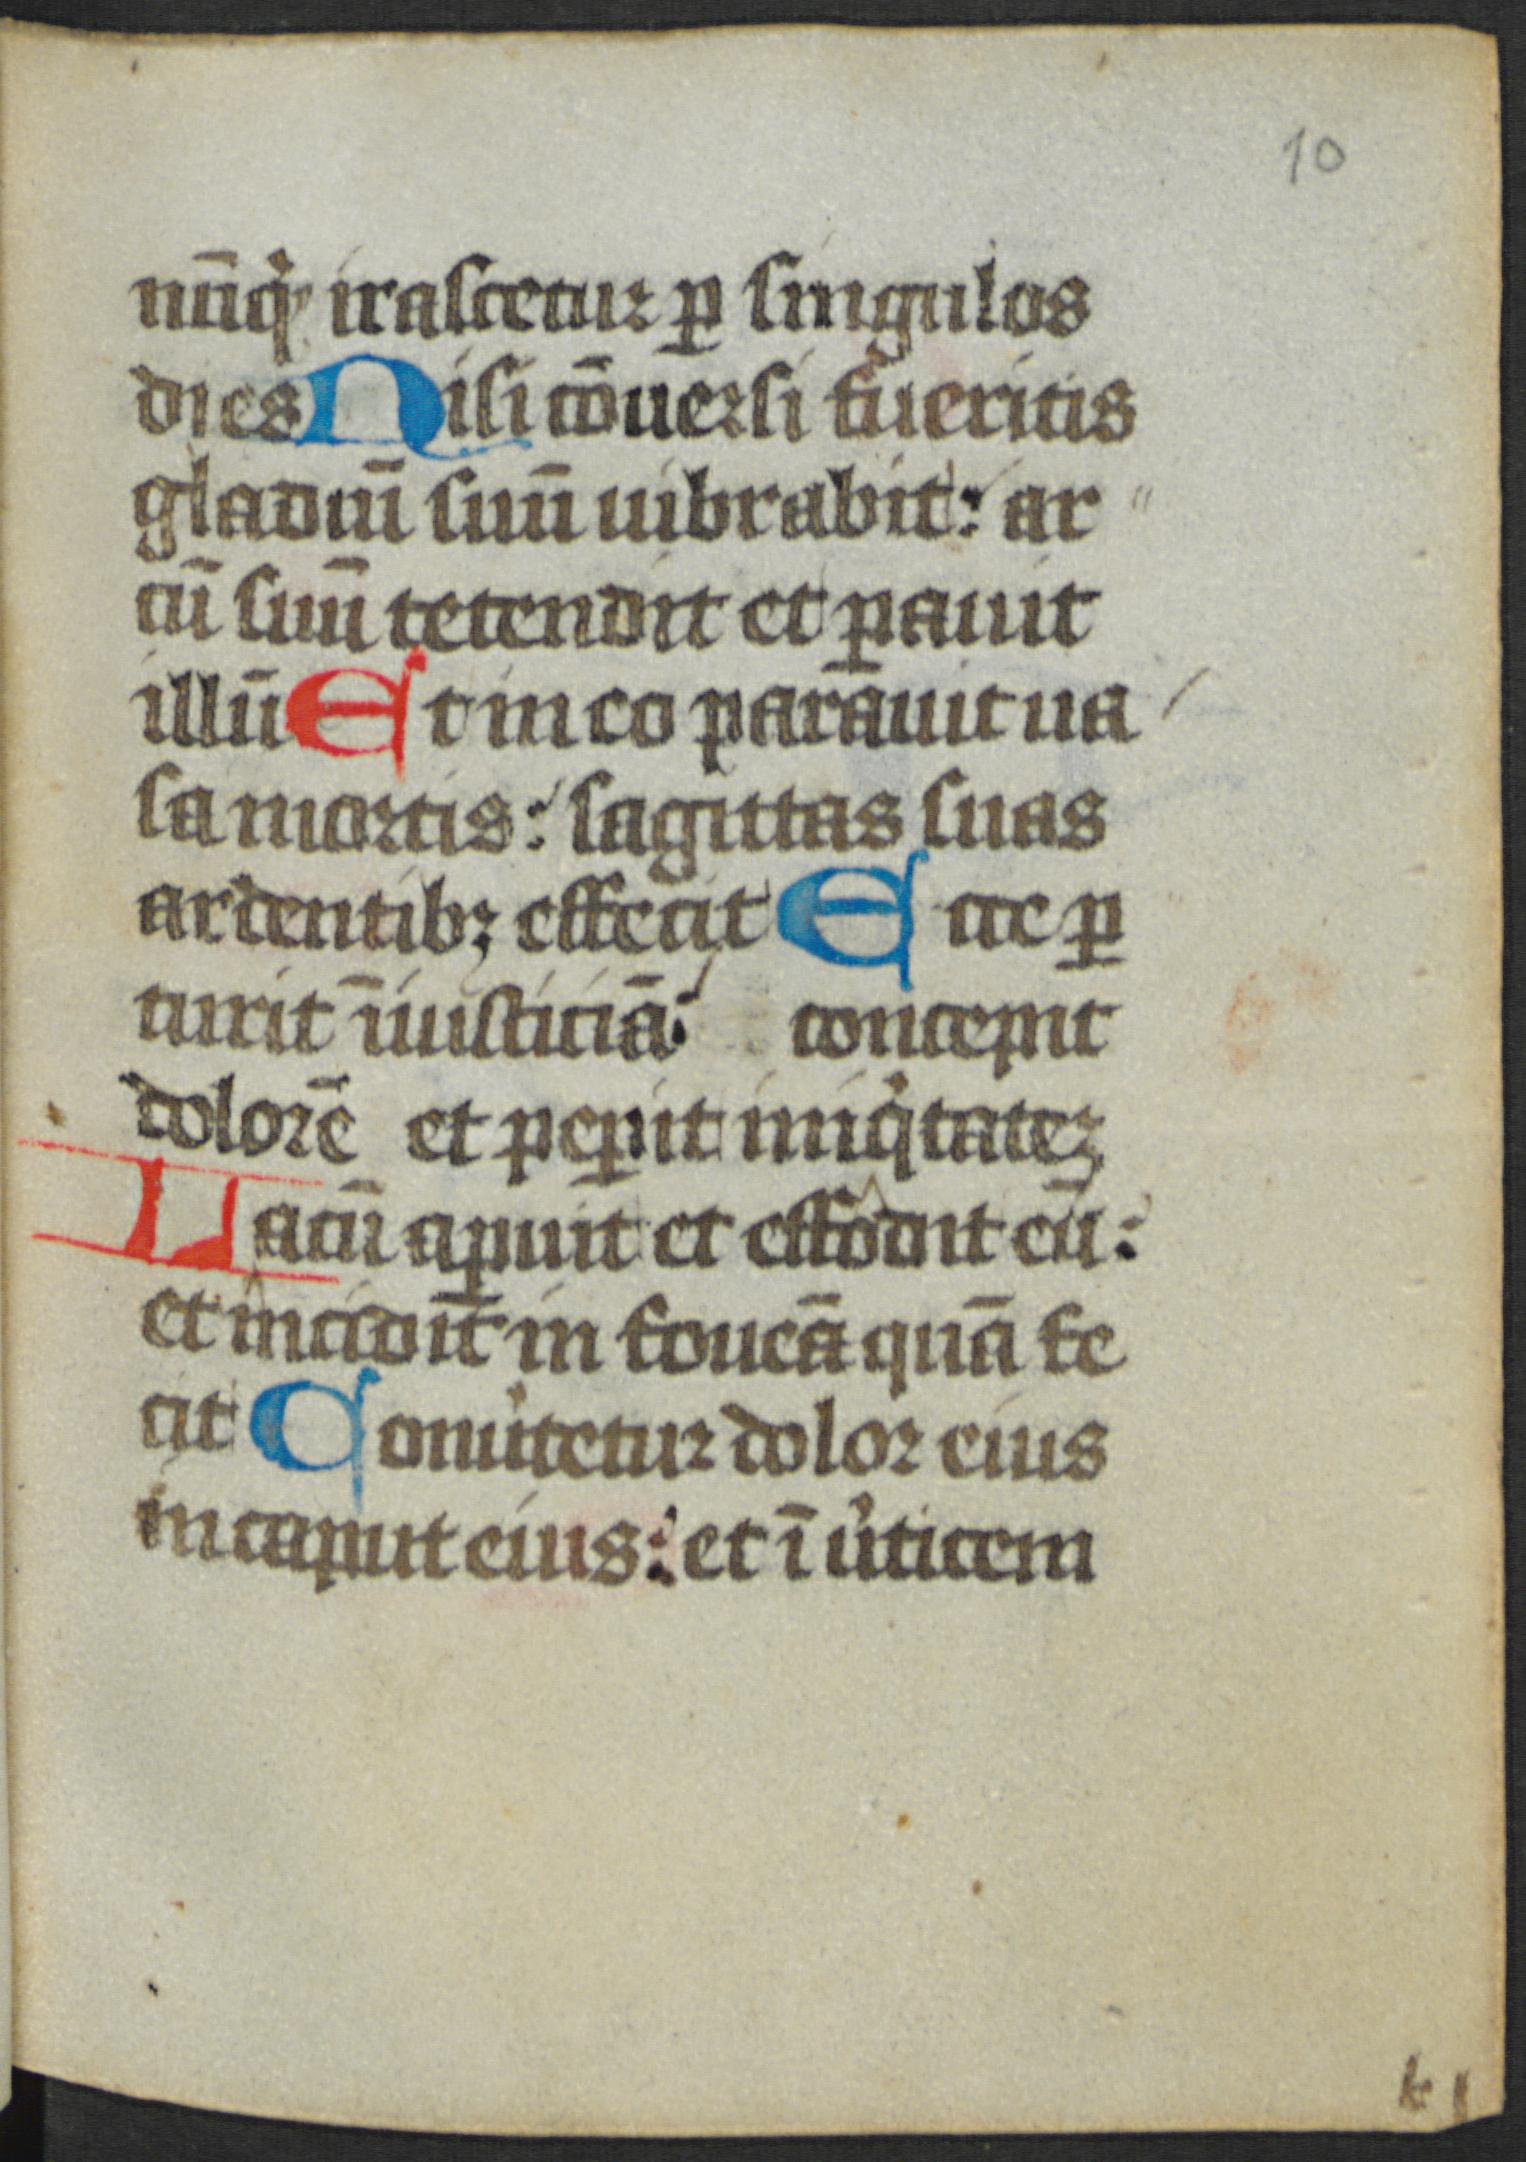 10
nūqͥd irascetur ꝑ singulos
dies Nisi cōuersi fueritis
gladiū suū uibrabit: ar
cū suū tetendit et ꝑauit
illū Et in eo parauit ua
sa mortis: sagittas suas
ardentibꝫ effecit Ecce ꝑ
turit īiusticiā: concepit
dolorē et peꝑit iniqͥtateꝫ
Lacū aꝑuit et effodit eū:
et incidit in foueā quā fe
cit Conu͛tetur dolor eius
in caput eius: et ī u͛ticem